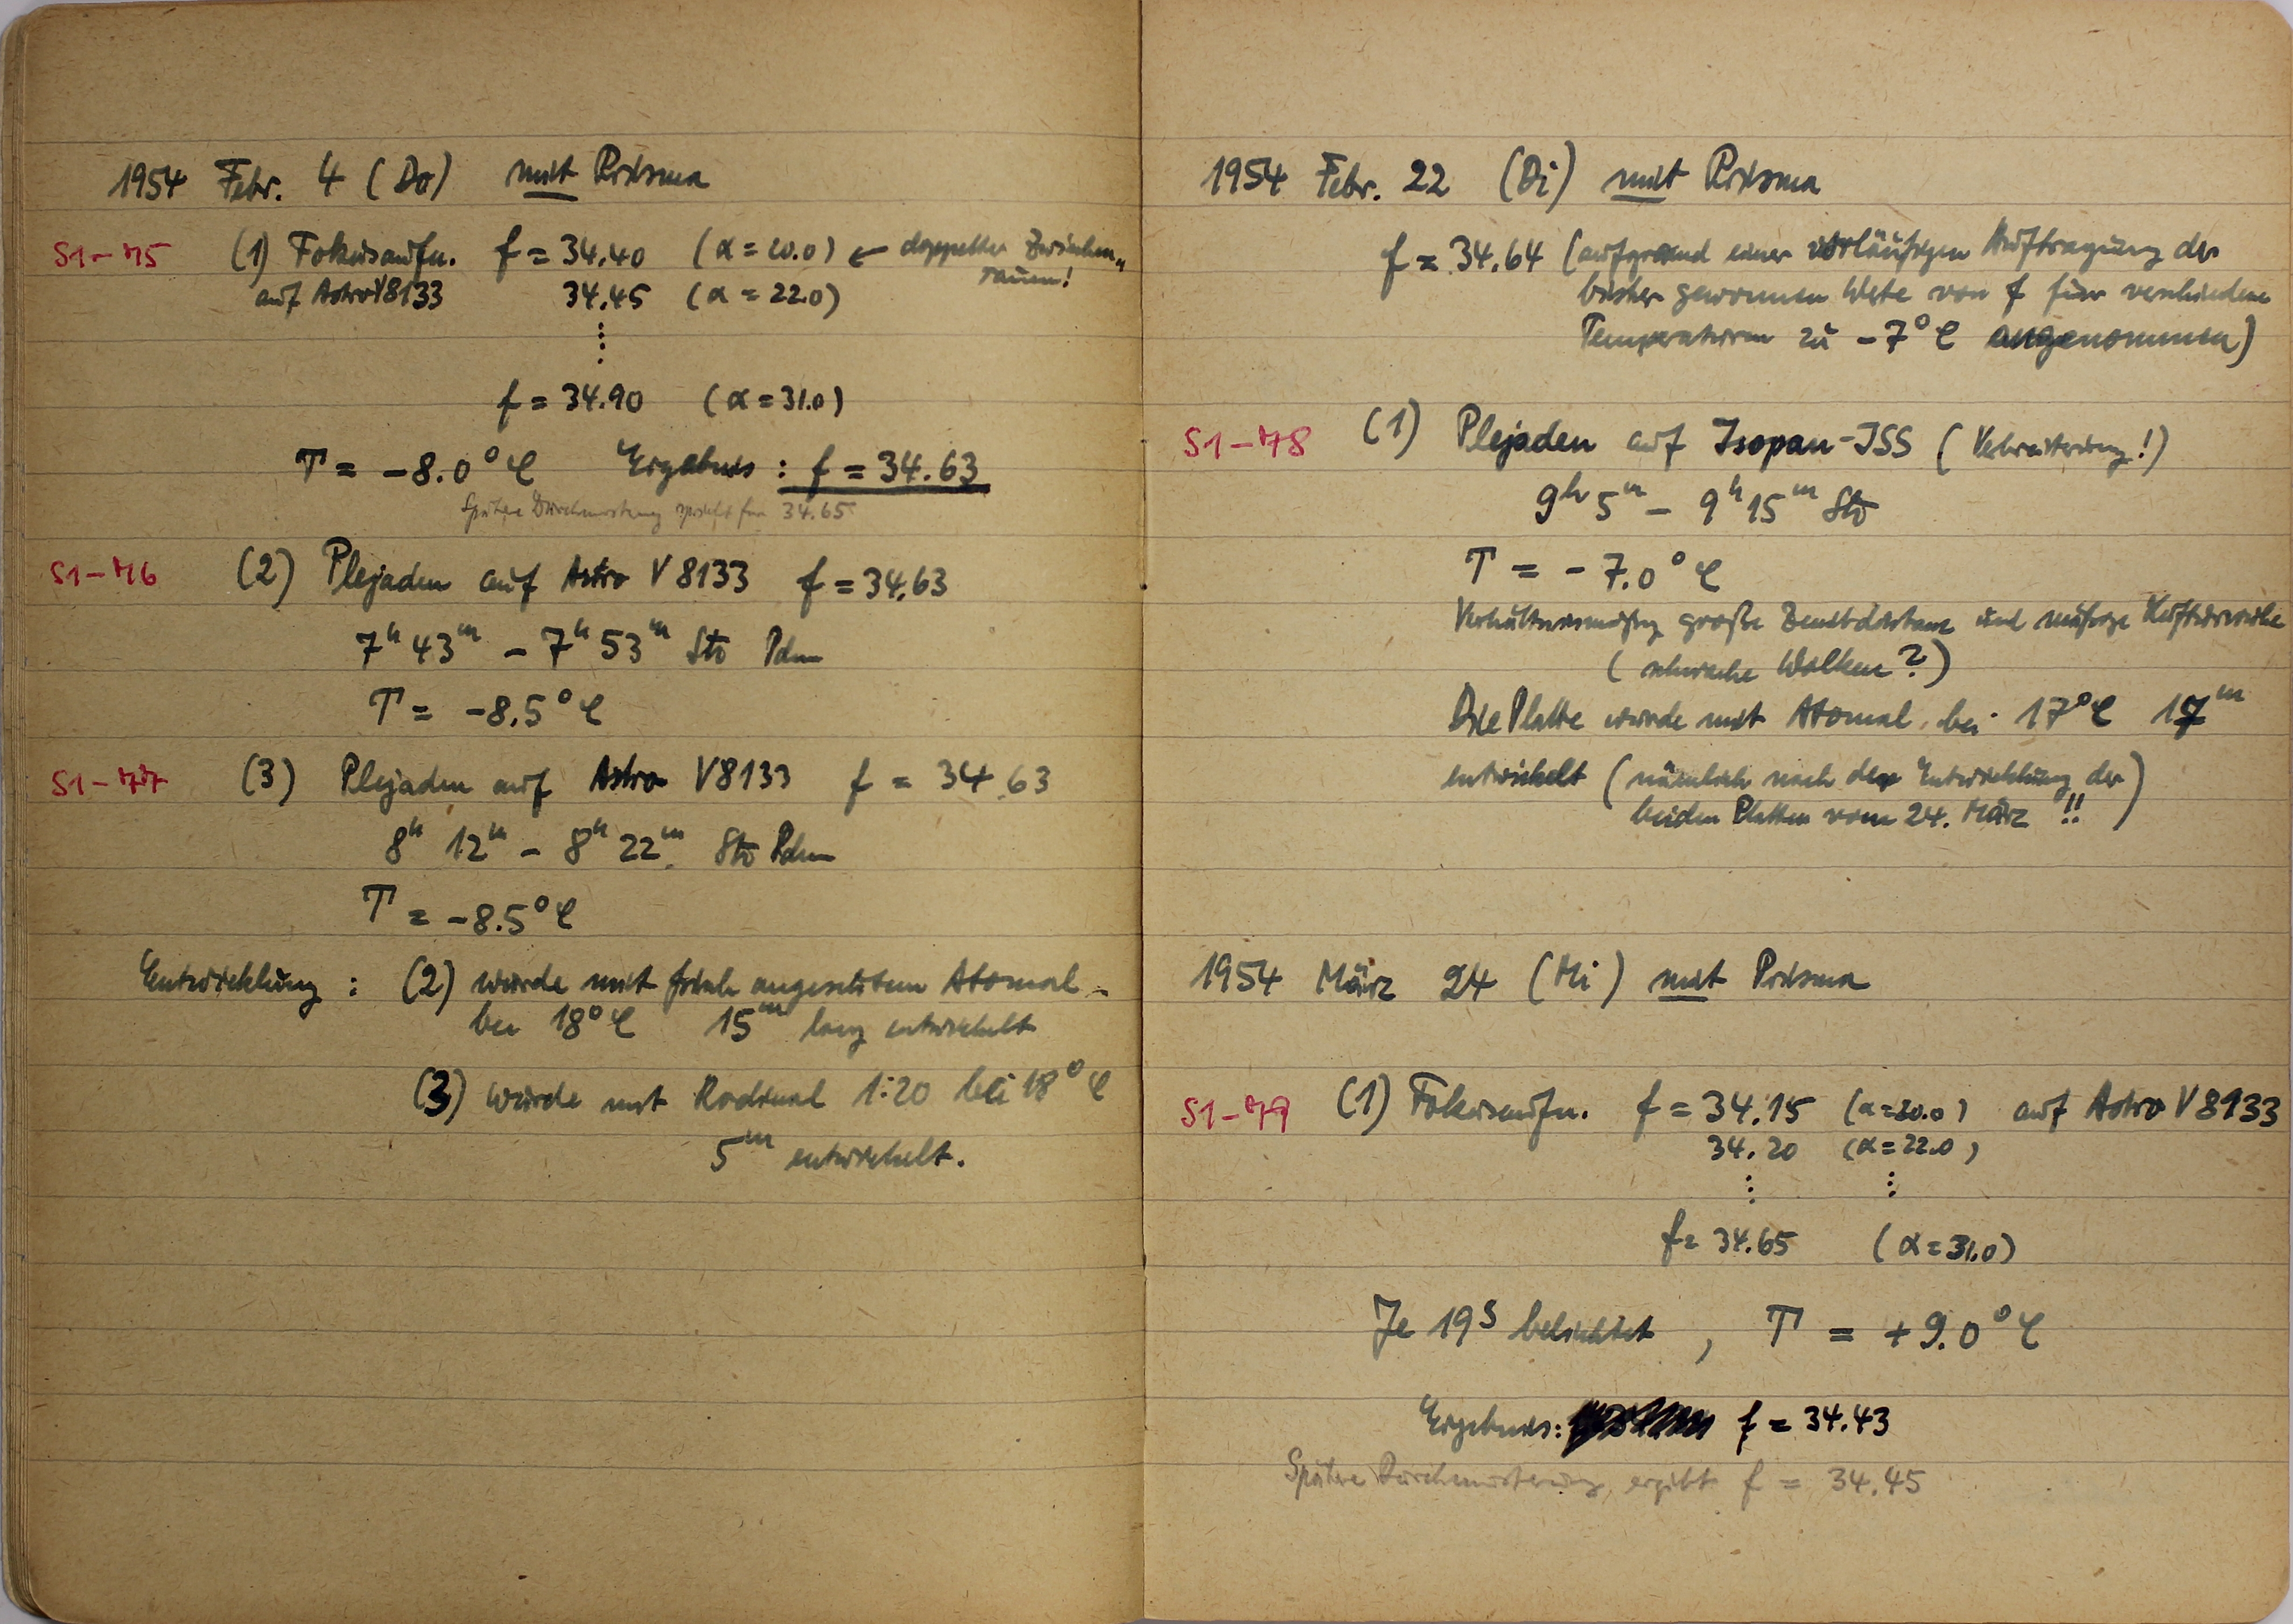 1954 Febr. 4 (Do) mit Prisma
S1-75 (1) Fokusaufn. f = 34.40 (α = 20.0) ← doppelter Zwischen-
raum!
auf Astro V8133 34.45 (α = 22.0)
⋮
f = 34.90 (α = 31.0)
T = -8.0° C Ergebnis : f = 34.63
Spätere Durchmusterung spricht für 34.65
S1-76 (2) Plejaden auf Astro V 8133 f = 34.63
7h 43m - 7h 53m Sto Pdm
T = -8.5° C
S1-77 (3) Plejaden auf Astro V8133 f = 34.63
8h 12m - 8h 22m Sto Pdm
T = -8.5° C
Entwicklung : (2) wurde mit frisch angesetztem Atomal
bei 18° C 15m lang entwickelt
(3) wurde mit Rodinal 1:20 bei 18° C
5m entwickelt.
1954 Febr. 22 (Di) mit Prisma
f = 34.64 (aufgrund einer vorläufigen Auftragung der
bisher gewonnen Werte von f für verschiedene
Temperaturen zu -7° C angenommen)
S1-78 (1) Plejaden auf Isopan-ISS (Verbreiterung!)
9h 5m - 9h 15m Sto
T = -7.0° C
Verhältnismäßig große Zenitdistanz und mäßige Luftunruhe
(schwache Wolken?)
Die Platte wurde mit Atomal bei 17° C 17m
entwickelt (nämlich nach der Entwicklung der
beiden Platten vom 24. März !!)
1954 März 24 (Mi) mit Prisma
S1-79 (1) Fokusaufn. f = 34.15 (α=20.0) auf Astro V 8133
34.20 (α=22.0)
⋮ ⋮
f = 34.65 (α = 31.0)
Je 19s belichtet , T = +9.0° C
Ergebnis: f = 34.43
Spätere Durchmusterung ergibt f = 34.45